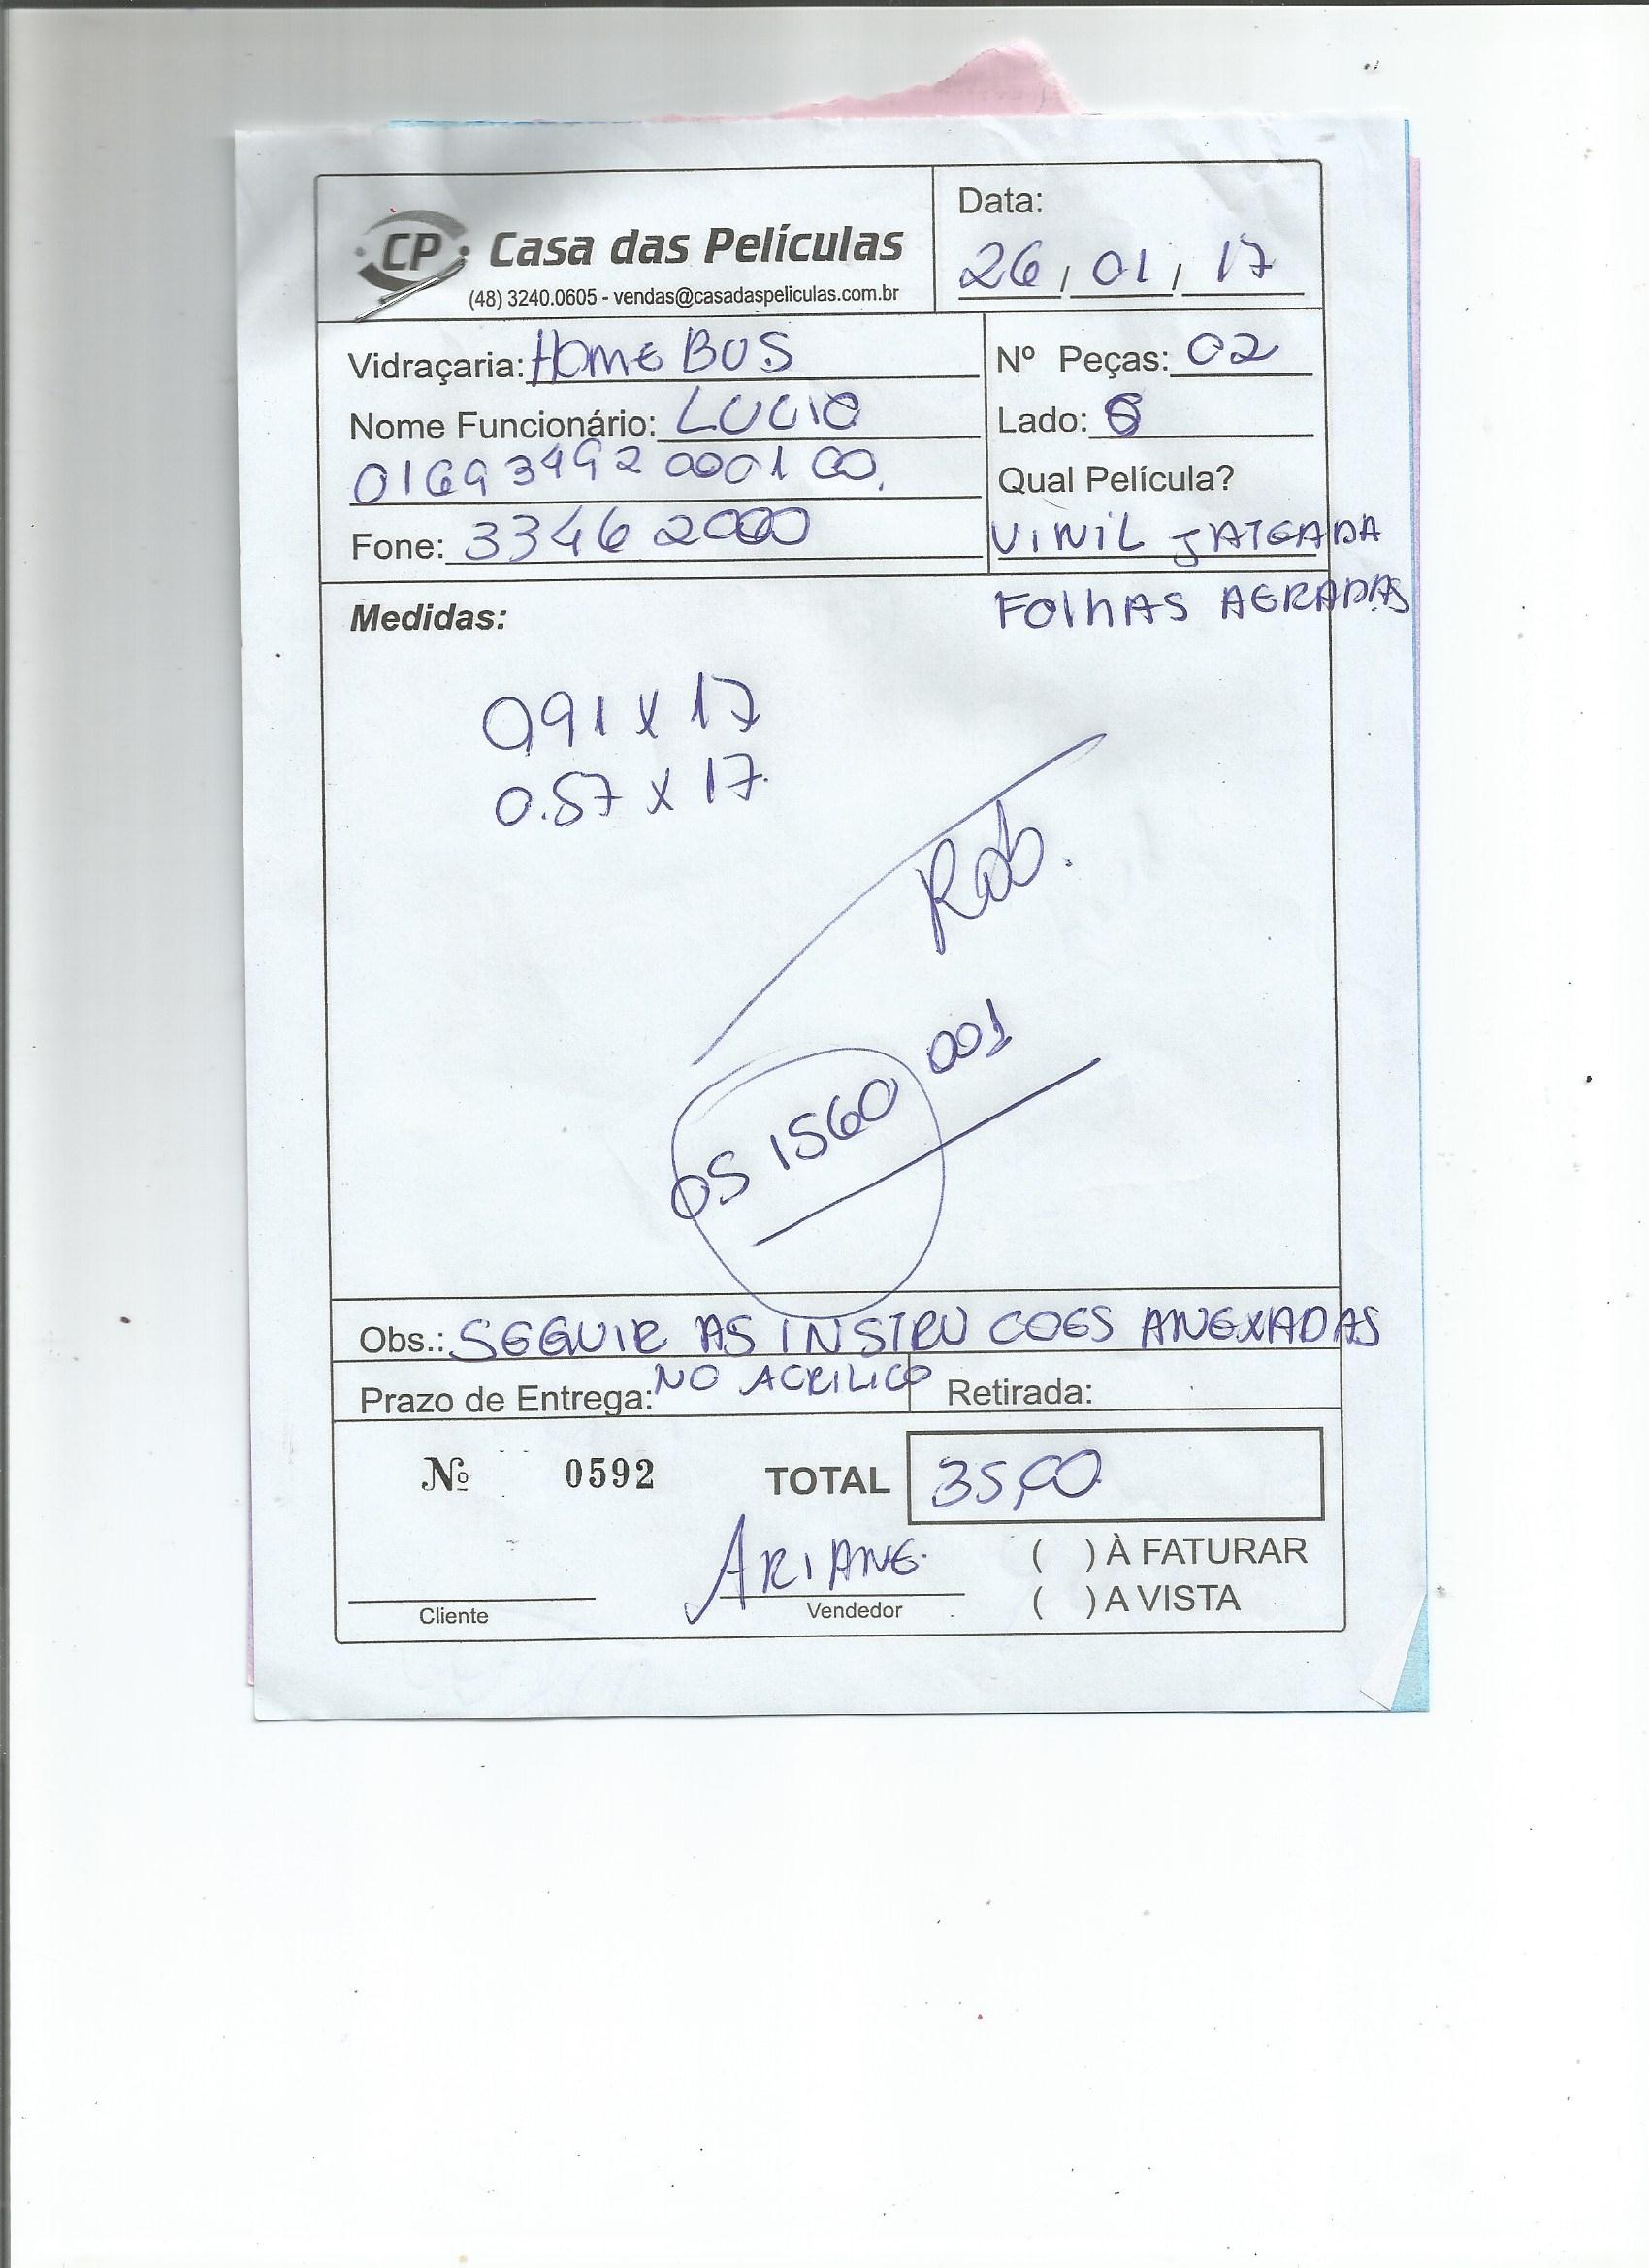 CP Casa das Películas
(48) 3240.0605 - vendas@casadaspeliculas.com.br
Data:
26/01/17
Vidraçaria: HOME BUS
Nº Peças: 02
Nome Funcionário: LUCIO
Lado:
01693492 0001 00.
Qual Película?
Fone: 3346 2000
VINIL JATEADA
FOlhAS AGRADAS
Medidas:
0,91 x 17
0.57 x 17.
OS 1560 001
Obs.: SEGUIR AS INSTRU COES ANEXADAS
NO ACRILICO
Prazo de Entrega:
Retirada:
Nº 0592
TOTAL 35,00
ARIANE.
( ) À FATURAR
( ) A VISTA
Cliente
Vendedor